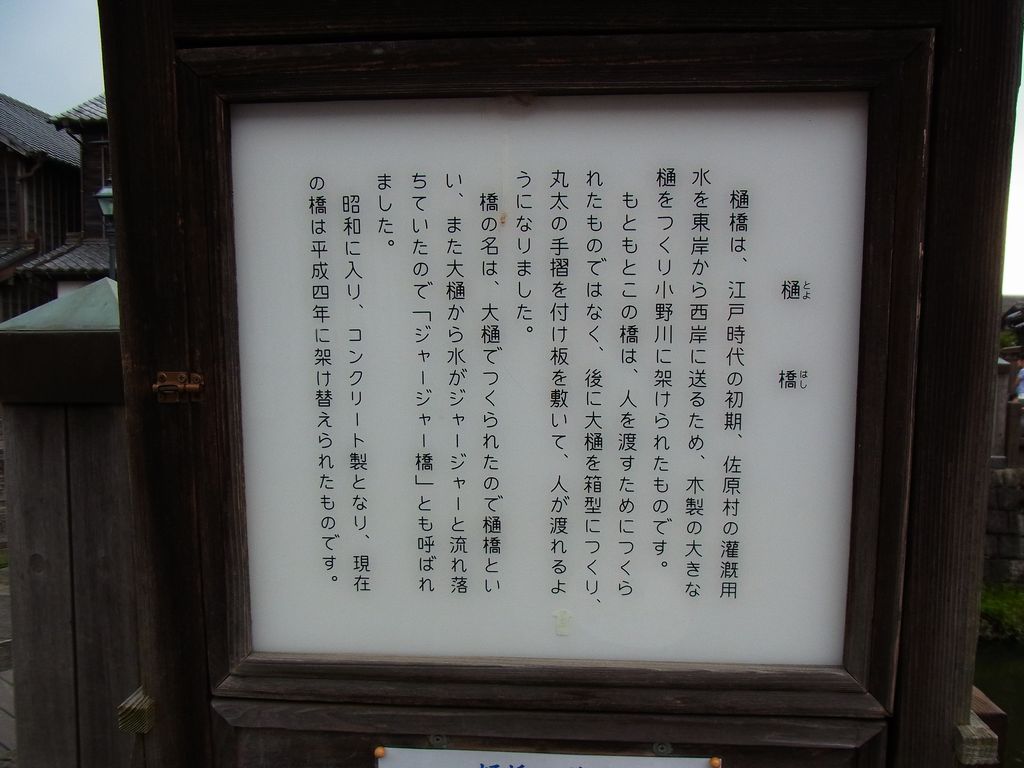 樋橋
とよはし
樋橋は、江戸時代の初期、佐原村の灌漑用
水を東岸から西岸に送るため、木製の大きな
樋をつくり小野川に架けられたものです。
もともとこの橋は、人を渡すためにつくら
れたものではなく、後に大樋を箱型につくり、
丸太の手摺を付け板を敷いて、人が渡れるよ
うになりました。
橋の名は、大樋でつくられたので樋橋とい
い、また大樋から水がジャージャーと流れ落
ちていたので「ジャージャー橋」とも呼ばれ
ました。
昭和に入り、コンクリート製となり、現在
の橋は平成四年に架け替えられたものです。